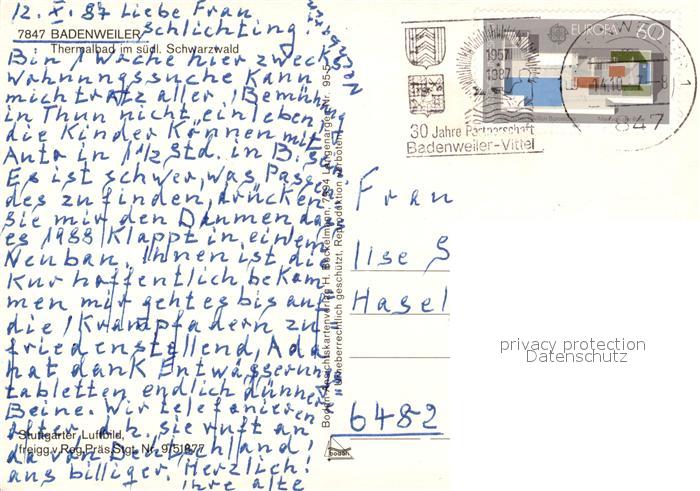 12. X. 87 Liebe Frau
7847 BADENWEILER Schlichting!
Thermalbad im südl. Schwarzwald
Bin 1 Woche hier zwecks
Wohnungssuche Kann
mich tratz aller Bemühn
in Thun nicht einleben
die Kinder Können mit
Auto in 1 1/2 Std. in B. sein
Es ist schwer, was Passen
des zu finden, drücken
Sie mir den Daumen da
es 1988 Klappt in einem
Neubau. Ihnen ist die
Kur hoffentlich bekom
men mir geht es bis auf
die Krampfadern zu
friedenstellend, Ada
hat dank Entwässerun
tabletten endlich dünner
Beine. Wir telefonieren
öfter, d.h. sie ruft an
Stuttgarter Luftbild,
da von Deutschland!
freigg.v.Reg.Präs.Stgt. Nr. 9/51877
aus billiger. Herzlich!
ihre alte
Boden Ansichtskartenverlag H. Bockelmann, 7994 Langenargen Nr. 95-5
Urheberrechtlich geschützt, Reproduktion verboten!
bodan
1957
1987
30 Jahre Partnerschaft
Badenweiler-Vittel
EUROPA 60
14.10.
847
1
Frau
Ilse S
Hasel
6482
privacy protection
Datenschutz